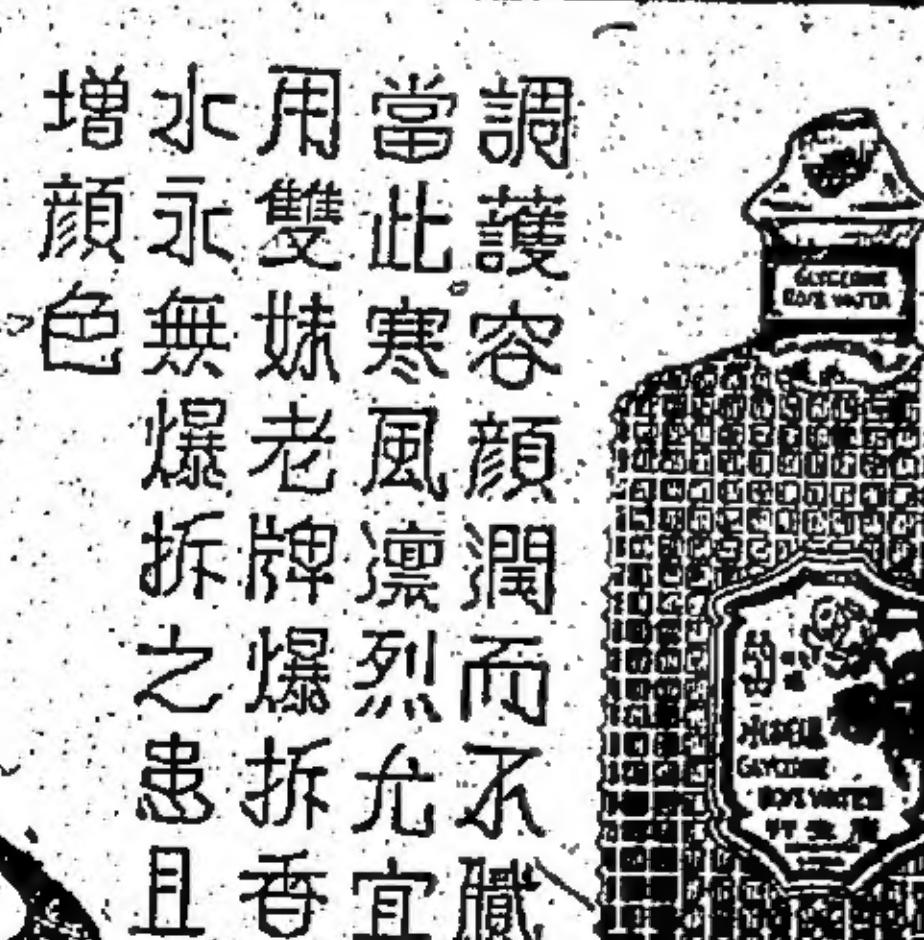 調護容顔潤而不膱
當此寒風凛烈尤宜
用雙妹老牌爆拆香
水永無爆拆之患且
增顔色
GLYCERINE
ROSE WATER
GLYCERINE
ROSE WATER